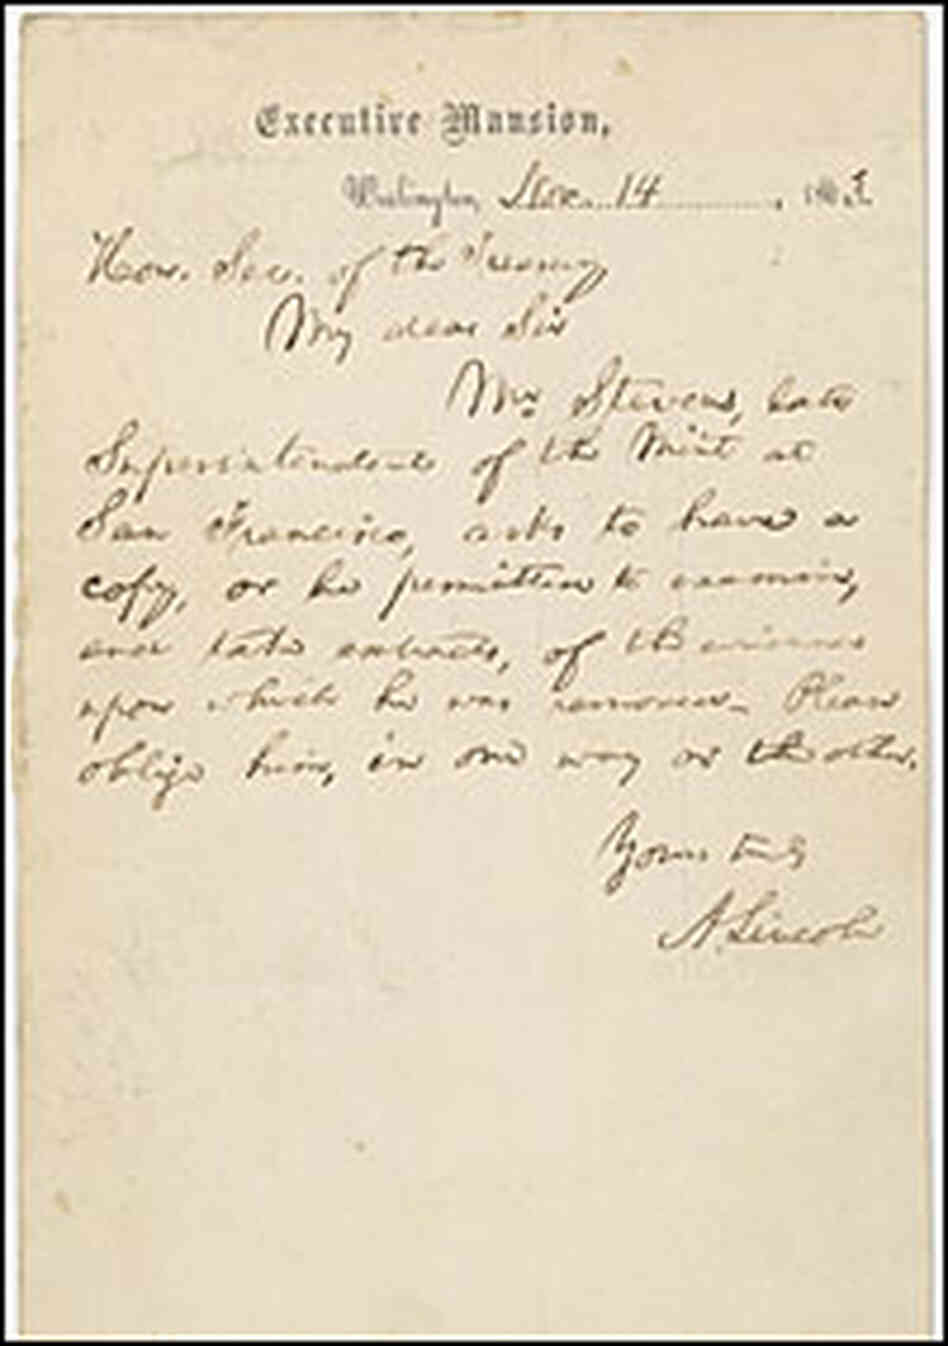 Executive Mansion,
Washington, Nov. 14, 1863
Hon. Sec. of the Treasury
My dear Sir
Mr. Stevens, late
Superintendent of the Mint at
San Francisco, asks to have a
copy, or be permitted to examine,
and take extracts, of the evidence
upon which he was removed— Please
oblige him, in one way or the other.
Yours truly
A. Lincoln